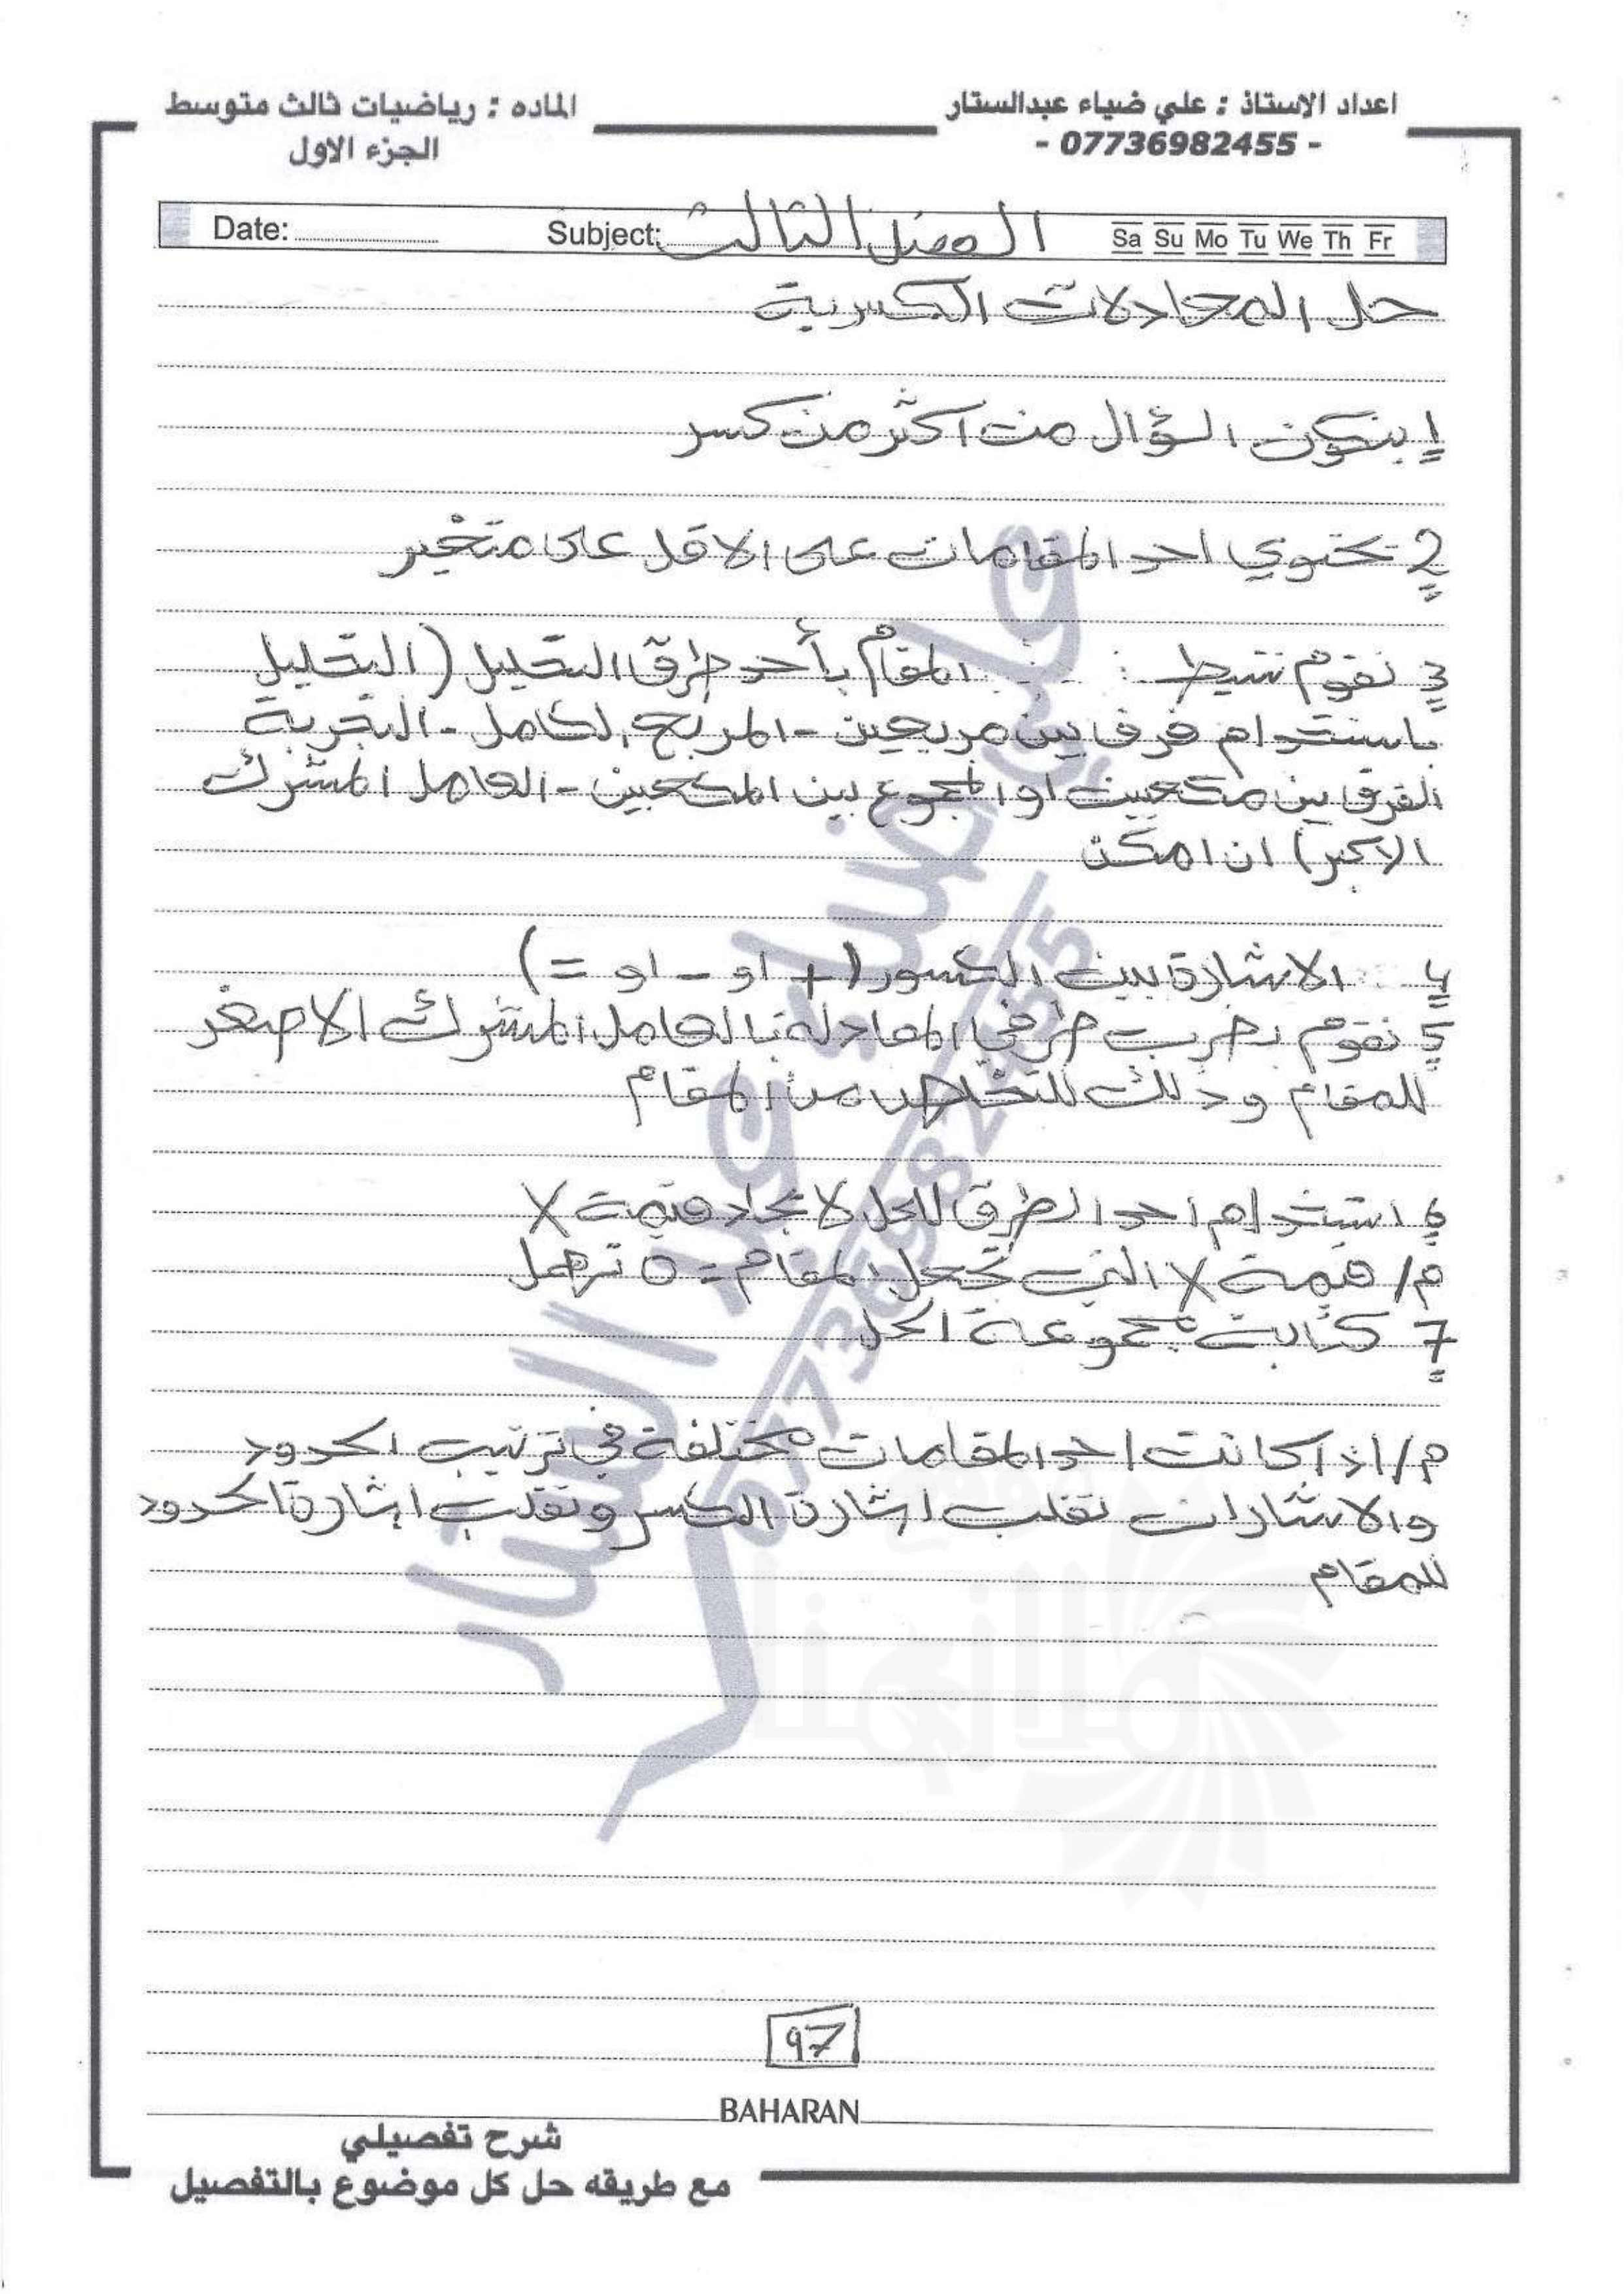 اعداد الاستاذ : علي ضياء عبدالستار
- 07736982455 -
الماده : رياضيات ثالث متوسط
الجزء الاول
Date: Subject: الفصل الثالث Sa Su Mo Tu We Th Fr
حل المعادلات الكسرية
1 يتكون السؤال من اكثر من كسر
2 تحتوي احد المقامات على الاقل على متغير
3 نقوم تبسيط المقام بأحد طرق التحليل (التحليل
باستخدام فرق بين مربعين - المربع الكامل - التجربة
الفرق بين مكعبين او المجموع بين المكعبين - العامل المشترك
الاكبر) ان امكن
4 الاشارة بين الكسور (+ او - او =)
5 نقوم بضرب طرفي المعادلة بالعامل المشترك الاصغر
للمقام وذلك للتخلص من المقام
6 استخدام احد الطرق للحل لايجاد قيمة X
م/ قيمة X التي تجعل المقام = 0 تهمل
7 كتابة مجموعة الحل
م/ اذا كانت احد المقامات مختلفة في ترتيب الحدود
والاشارات نقلب اشارة الكسر ونقلب اشارة الحدود
للمقام
علي ضياء عبد الستار
07736982455
97
BAHARAN
شرح تفصيلي
مع طريقه حل كل موضوع بالتفصيل